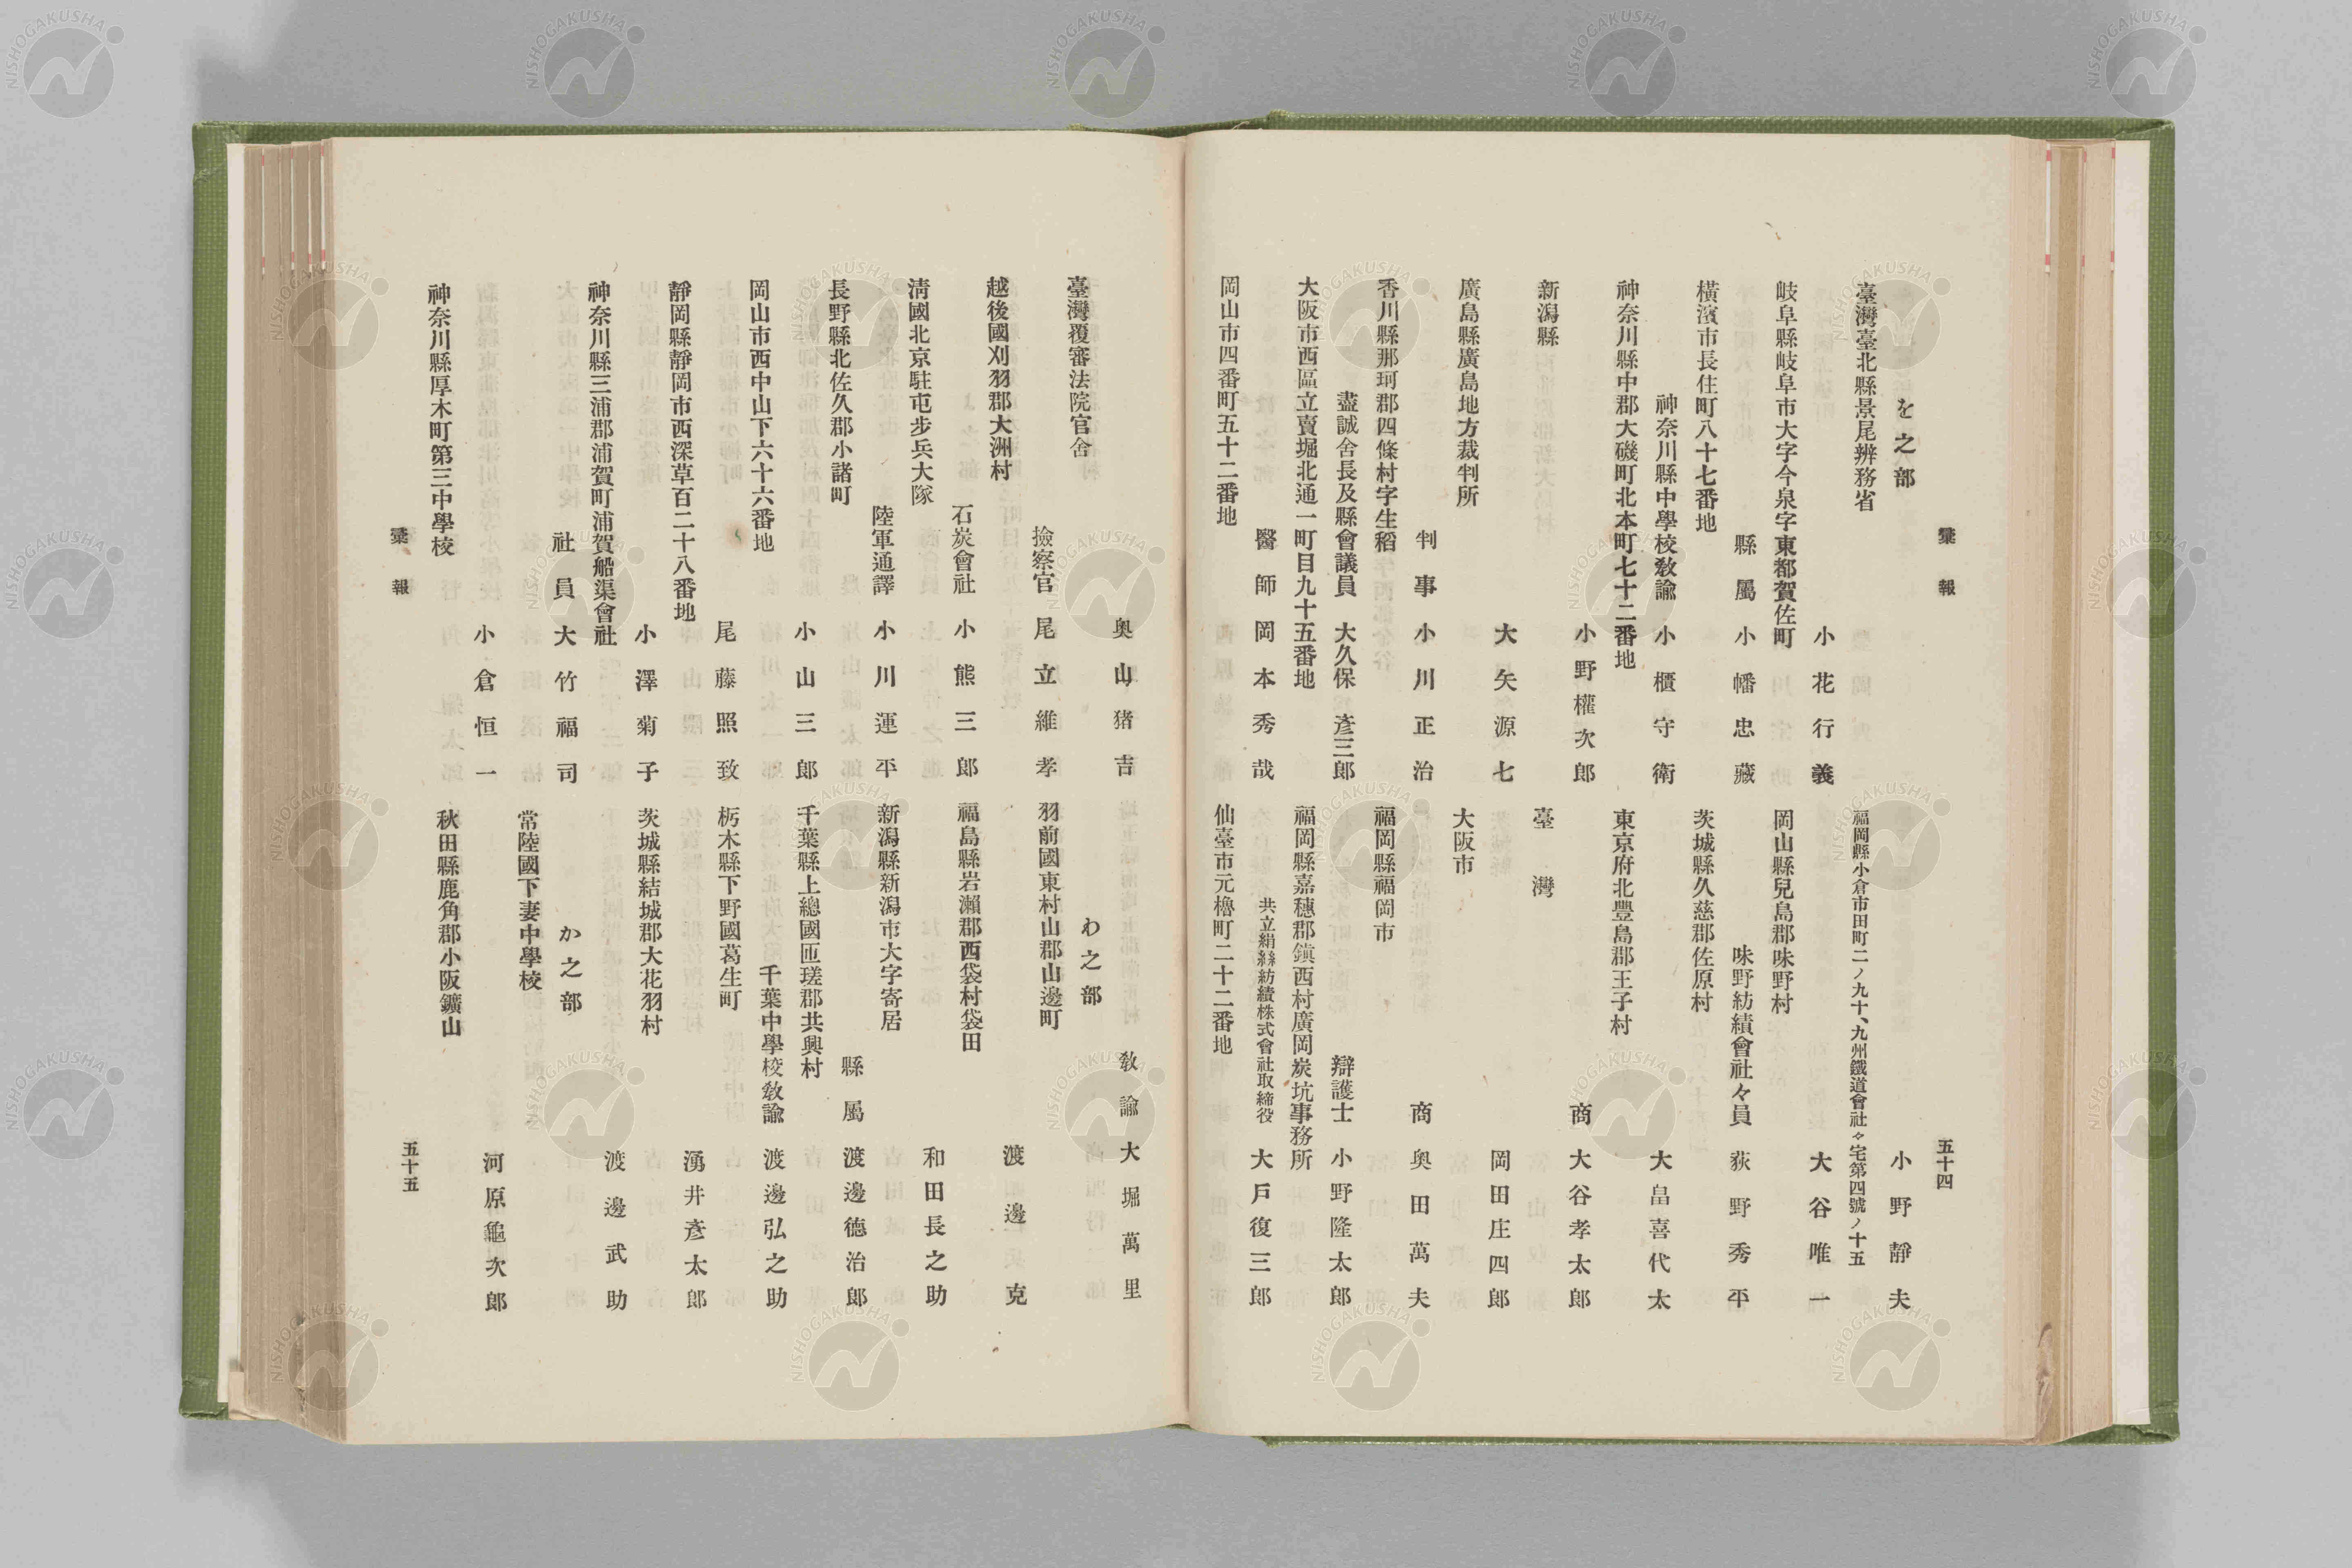 彙報
を之部
臺灣臺北縣景尾辨務省
小花行義
岐阜縣岐阜市大字今泉字東都賀佐町
縣屬 小幡忠藏
橫濱市長住町八十七番地
神奈川縣中學校敎諭 小櫃守衛
神奈川縣中郡大磯町北本町七十二番地
小野權次郎
新潟縣
大矢源七
廣島縣廣島地方裁判所
判事 小川正治
香川縣那珂郡四條村字生稻
盡誠舍長及縣會議員 大久保彥三郎
大阪市西區立賣堀北通一町目九十五番地
醫師 岡本秀哉
岡山市四番町五十二番地
五十四
小野靜夫
福岡縣小倉市田町二ノ九十、九州鐵道會社々宅第四號ノ十五
大谷唯一
岡山縣兒島郡味野村
味野紡績會社々員 荻野秀平
茨城縣久慈郡佐原村
大畠喜代太
東京府北豐島郡王子村
商 大谷孝太郎
臺灣
岡田庄四郎
大阪市
商 奧田萬夫
福岡縣福岡市
辯護士 小野隆太郎
福岡縣嘉穗郡鎭西村廣岡炭坑事務所
共立絹絲紡績株式會社取締役 大戶復三郎
仙臺市元櫓町二十二番地
奧山猪吉
臺灣覆審法院官舍
撿察官 尾立維孝
越後國刈羽郡大洲村
石炭會社 小熊三郎
淸國北京駐屯步兵大隊
陸軍通譯 小川運平
長野縣北佐久郡小諸町
小山三郎
岡山市西中山下六十六番地
尾藤照致
靜岡縣靜岡市西深草百二十八番地
小澤菊子
神奈川縣三浦郡浦賀町浦賀船渠會社
社員 大竹福司
小倉恒一
神奈川縣厚木町第三中學校
彙報
敎諭 大堀萬里
わ之部
羽前國東村山郡山邊町
渡邊克
福島縣岩瀨郡西袋村袋田
和田長之助
新潟縣新潟市大字寄居
縣屬 渡邊德治郎
千葉縣上總國匝瑳郡共興村
千葉中學校敎諭 渡邊弘之助
栃木縣下野國葛生町
湧井彥太郎
茨城縣結城郡大花羽村
渡邊武助
か之部
常陸國下妻中學校
河原龜次郎
秋田縣鹿角郡小阪鑛山
五十五
NISHOGAKUSHA